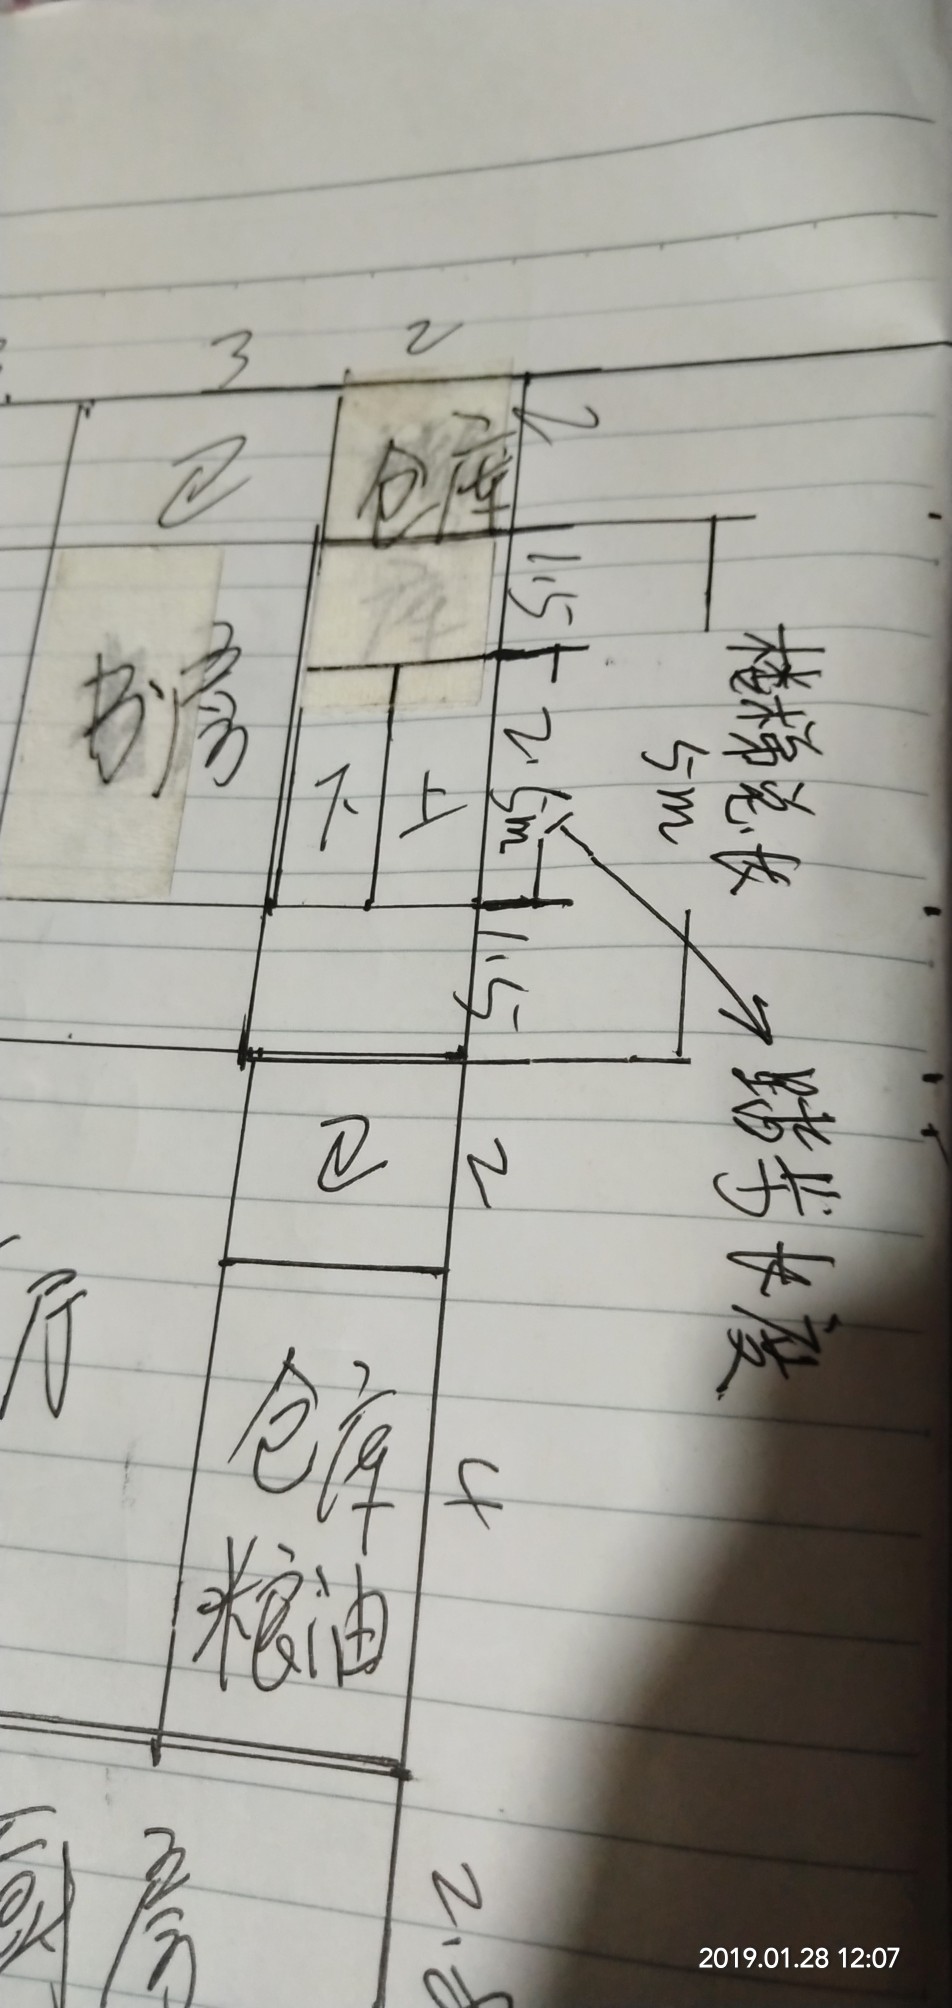 3
2
2
卫
仓库
库
1.5
书房
下
上
2.5m
楼梯总长
5m
1.5
踏步长度
卫
2
厅
仓库
4
粮油
厨房
2.8
2019.01.28 12:07